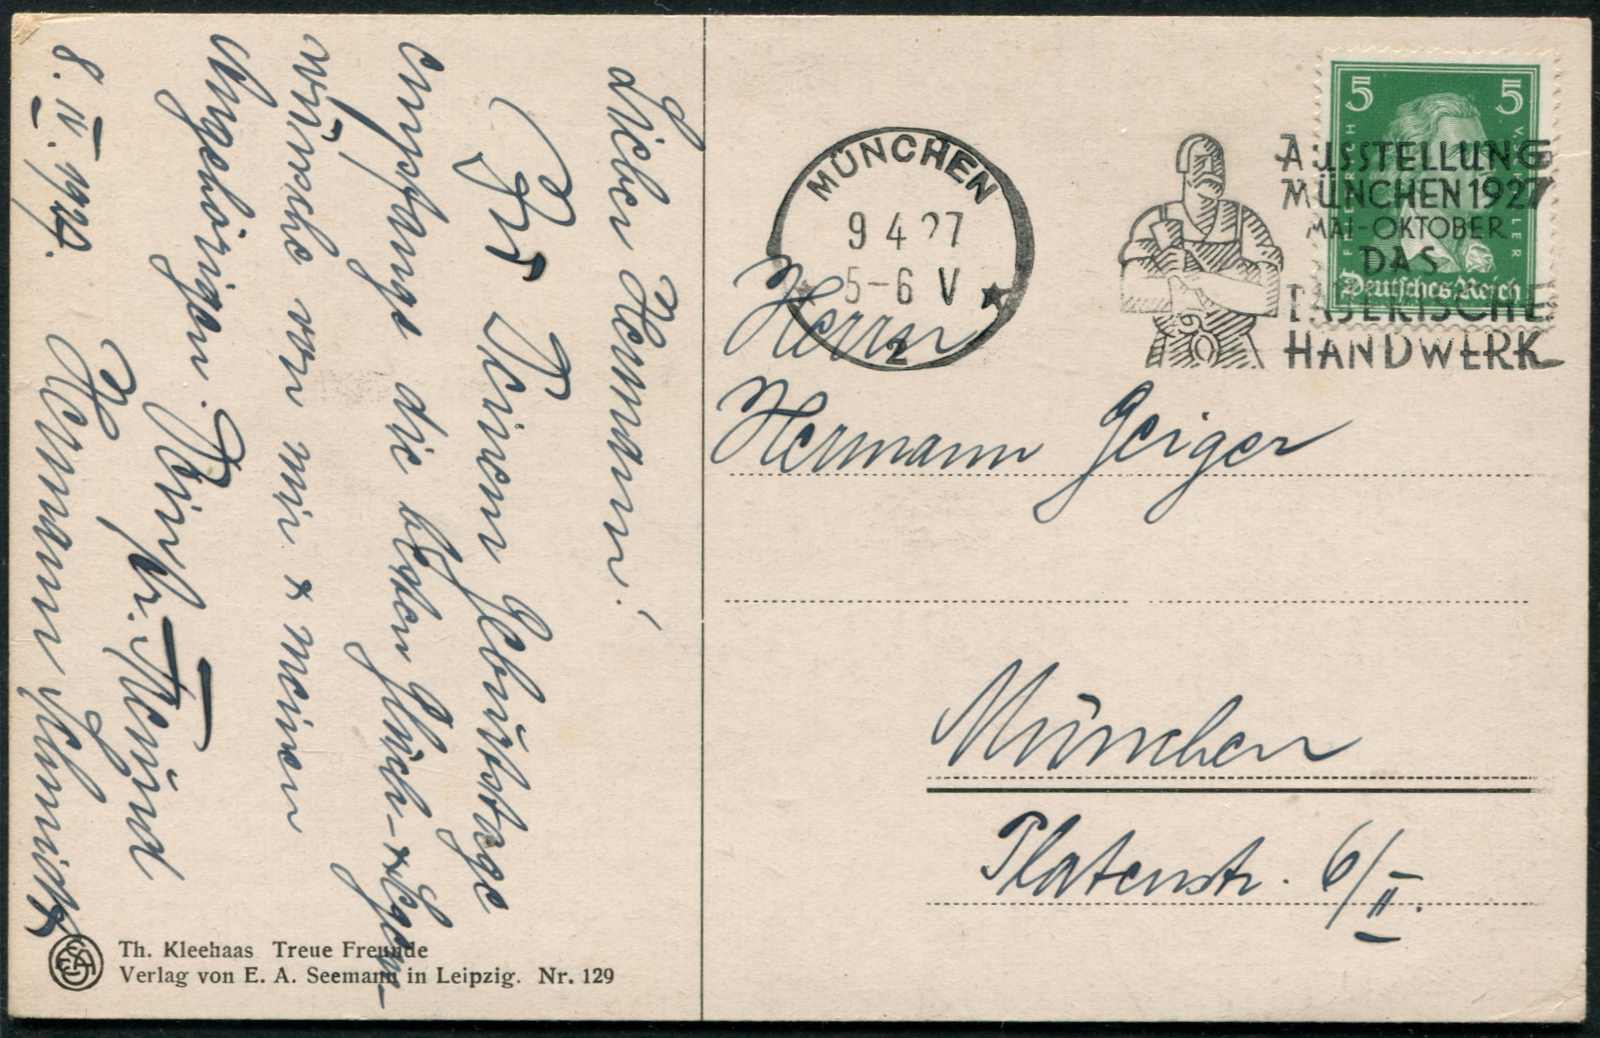 Lieber Hermann!
Zu Deinem Geburtstage
empfange die besten Glück- & Segens-
wünsche von mir & meinen
Angehörigen. Dein
Freund
Hermann Schmidt
8. IV. 1927.
Th. Kleehaas Treue Freunde
Verlag von E. A. Seemann in Leipzig. Nr. 129
MÜNCHEN
9 4 27
5-6 V
2
AUSSTELLUNG
MÜNCHEN 1927
MAI-OKTOBER
DAS
BAYERISCHE
HANDWERK
5 5
FRIEDRICH V. SCHILLER
Deutsches Reich
Herrn
Hermann Geiger
München
Platenstr. 6/II.